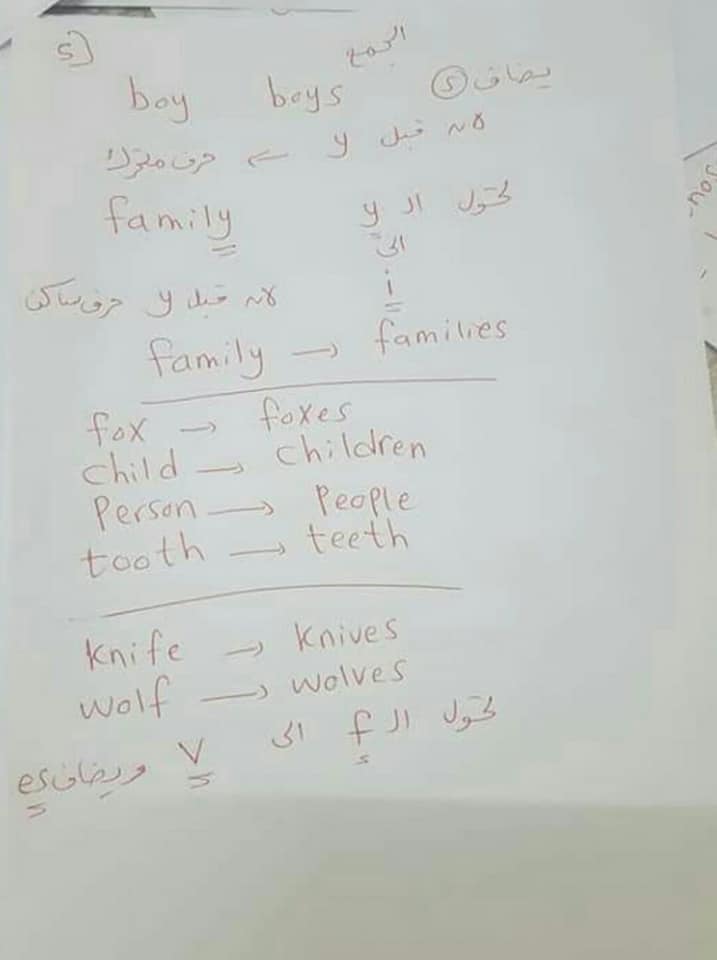 5) الجمع
boy boys يضاف (s)
لانه قبل y ← حرف متحرك
family تحول ال y
الى
i
لانه قبل y حرف ساكن
family → families
fox → foxes
child → children
Person → People
tooth → teeth
knife → knives
wolf → wolves
تحول ال f الى v ويضاف es